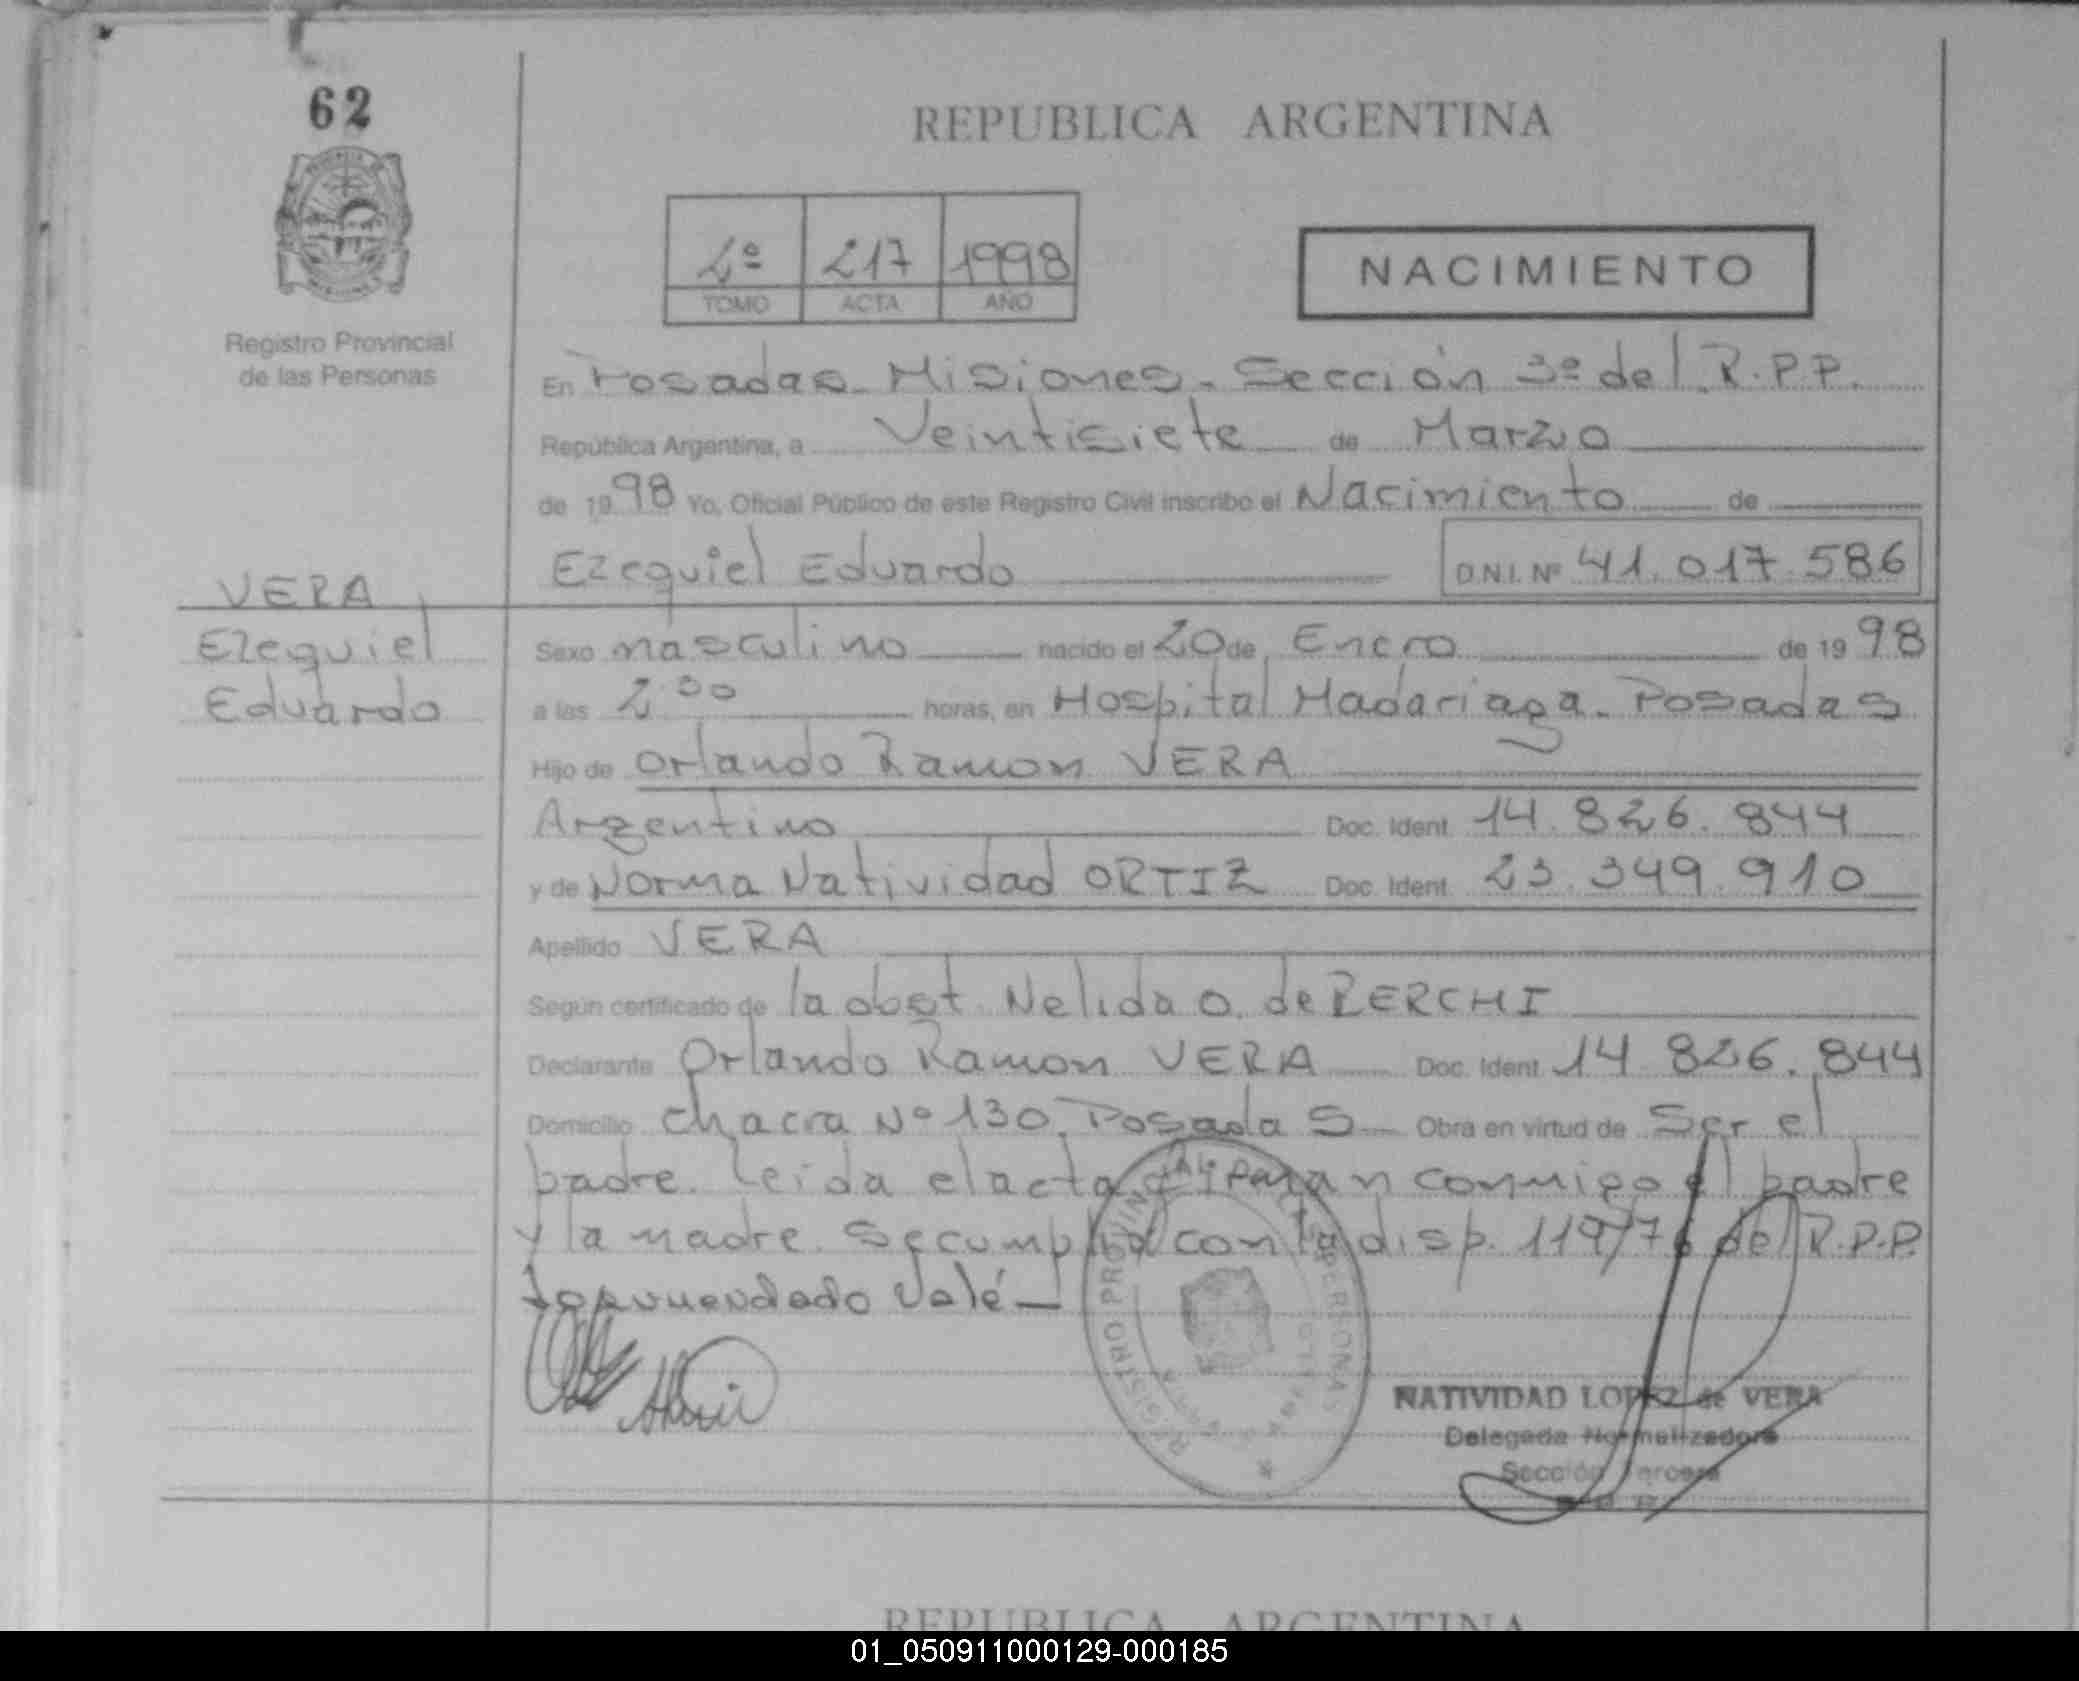 62
REPUBLICA ARGENTINA
2º 217 1998
TOMO ACTA AÑO
NACIMIENTO
Registro Provincial
de las Personas
En Posadas Misiones. Sección 3º del R.P.P.
República Argentina, a Veintisiete de Marzo
de 1998 Yo, Oficial Público de este Registro Civil inscribo el Nacimiento de
Ezequiel Eduardo D.N.I. Nº 41.017.586
VERA
Ezequiel
Eduardo
Sexo masculino nacido el 20 de Enero de 1998
a las 2 30 horas, en Hospital Madariaga. Posadas
Hijo de Orlando Ramon VERA
Argentino Doc. Ident. 14.826.844
y de Norma Natividad ORTIZ Doc. Ident. 23.349.910
Apellido VERA
Según certificado de la obst. Nelida O. de
Declarante Orlando Ramon VERA Doc. Ident. 14.826.844
Domicilio Chacra Nº 130. Posadas Obra en virtud de Ser el
padre. Leida el acta firman conmigo el padre
y la madre. Se cumplió con la disp. 119/76 del R.P.P.
Vale
REGISTRO PROVINCIAL DE LAS PERSONAS
NATIVIDAD LOPEZ de VERA
Delegada Normalizadora
Sección Tercera
REPUBLICA ARGENTINA
01_050911000129-000185